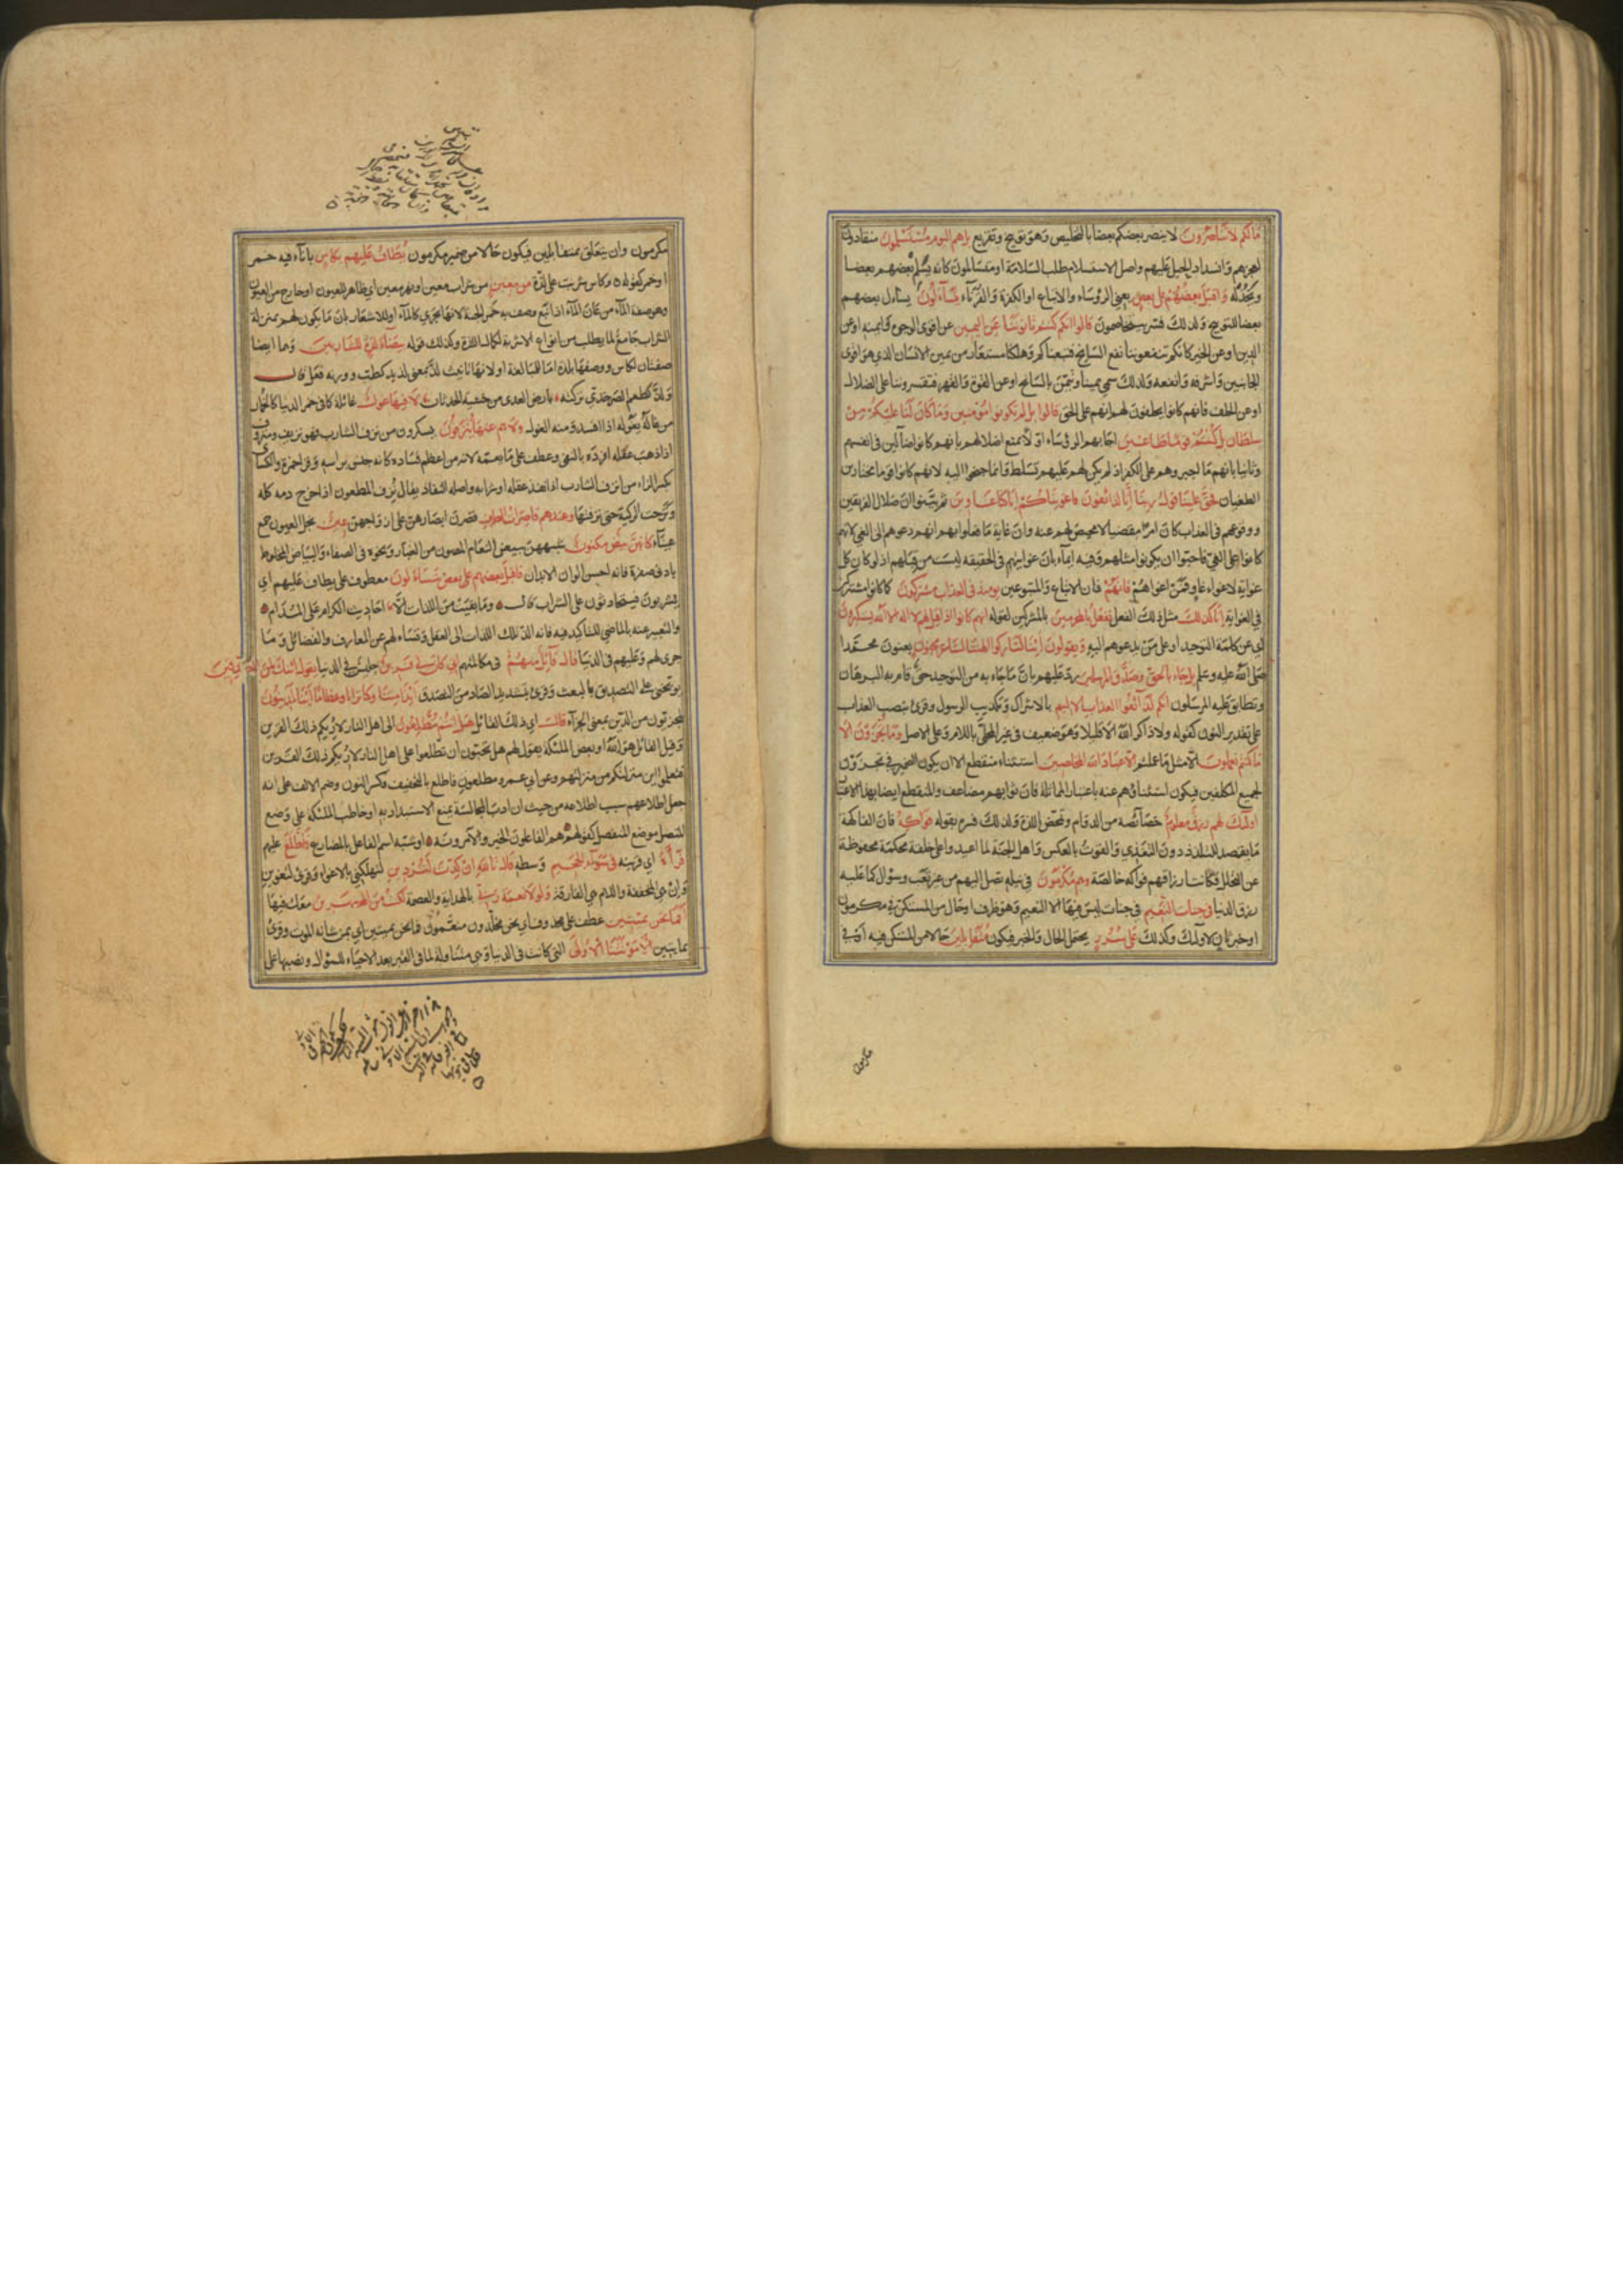 مالكم لا تناصرون لا ينصر بعضكم بعضا بالتخليص وهو توبيخ وتقريع بل هم اليوم مستسلمون منقادون
لعجزهم وانسداد الحيل عليهم واصل الاستسلام طلب السلامة او متسالمون كانه يسلم بعضهم بعضا
ويخذله واقبل بعضهم على بعض يعني الرؤساء والاتباع او الكفرة والقرناء يتساءلون يسأل بعضهم
بعضا للتوبيخ ولذلك فسر بيتخاصمون قالوا انكم كنتم تأتوننا عن اليمين عن اقوى الوجوه وايمنه او عن
الدين او عن الخير كانكم تنفعوننا نفع السانح فتبعناكم وهلكنا مستعار من يمين الانسان الذي هو اقوى
الجانبين واشرفه وانفعه ولذلك سمي يمينا وتيمن بالسانح او عن القوة والقهر فتقسروننا على الضلال
او عن الحلف فانهم كانوا يحلفون لهم انهم على الحق قالوا بل لم تكونوا مؤمنين وما كان لنا عليكم من
سلطان بل كنتم قوما طاغين اجابهم الرؤساء اولا بمنع اضلالهم بانهم كانوا ضالين في انفسهم
وثانيا بانهم ما اجبروهم على الكفر اذ لم يكن لهم عليهم تسلط وانما جنحوا اليه لانهم كانوا قوما مختارين
الطغيان فحق علينا قول ربنا انا لذائقون فاغويناكم انا كنا غاوين ثم بينوا ان ضلال الفريقين
ووقوعهم في العذاب كان امرا مقضيا لا محيص لهم عنه وان غاية ما فعلوا بهم انهم دعوهم الى الغي لانهم
كانوا على الغي فاحبوا ان يكونوا مثلهم وفيه ايماء بان غوايتهم في الحقيقة ليست من قبلهم اذ لو كان كل
غواية لاغواء غاو فمن اغواهم فانهم فان الاتباع والمتبوعين يومئذ في العذاب مشتركون كما كانوا مشتركين
في الغواية انا كذلك مثل ذلك الفعل نفعل بالمجرمين بالمشركين لقوله انهم كانوا اذا قيل لهم لا اله الا الله يستكبرون
اي عن كلمة التوحيد او على من يدعوهم اليه ويقولون ائنا لتاركوا الهتنا لشاعر مجنون يعنون محمدا
صلى الله عليه وسلم بل جاء بالحق وصدق المرسلين رد عليهم بان ما جاء به من التوحيد حق قام به البرهان
وتطابق عليه المرسلون انكم لذائقوا العذاب الاليم بالاشراك وتكذيب الرسول وقرئ بنصب العذاب
على تقدير النون كقوله ولا ذاكر الله الا قليلا وهو ضعيف في غير المحلى باللام وعلى الاصل وما تجزون الا
ما كنتم تعملون الا مثل ما عملتم الا عباد الله المخلصين استثناء منقطع الا ان يكون الضمير في تجزون
لجميع المكلفين فيكون استثناؤهم عنه باعتبار المماثلة فان ثوابهم مضاعف والمنقطع ايضا بهذا الاعتبار
اولئك لهم رزق معلوم خصائصه من الدوام وتمحض اللذة ولذلك فسره بقوله فواكه فان الفاكهة
ما يقصد للتلذذ دون التغذي والقوت بالعكس واهل الجنة لما اعيدوا على خلقة محكمة محفوظة
عن التحلل فكانت ارزاقهم فواكه خالصة وهم مكرمون في نيله يصل اليهم من غير تعب وسؤال كما عليه
رزق الدنيا في جنات النعيم في جنات ليس فيها الا النعيم وهو ظرف او حال من المستكن في مكرمون
او خبر ثان لاولئك وكذلك على سرر يحتمل الحال والخبر فيكون متقابلين حالا من المستكن فيه او في
مكرمون
مكرمون وان يتعلق بمتقابلين فيكون حالا من ضمير مكرمون يطاف عليهم بكاس باناء فيه خمر
او خمر كقوله وكاس شربت على لذة من معين من شراب معين او نهر معين اي ظاهر للعيون او خارج من العيون
وهو صفة الماء من عان الماء اذا نبع وصف به خمر الجنة لانها تجري كالماء او للاشعار بان ما يكون لهم بمنزلة
الشراب جامع لما يطلب من انواع الاشربة لكمال اللذة وكذلك قوله بيضاء لذة للشاربين وهما ايضا
صفتان لكاس ووصفها بلذة اما للمبالغة او لانها تانيث لذ بمعنى لذيذ كطب ووزنه فعل قال
ولذ كطعم الصرخدي تركته بارض العدى من خشية الحدثان لا فيها غول غائلة كما في خمر الدنيا كالخمار
من غاله يغوله اذا افسده ومنه الغول ولا هم عنها ينزفون يسكرون من نزف الشارب فهو نزيف ومنزوف
اذا ذهب عقله افرده بالنفي وعطف على ما يعمه لانه من اعظم فساده كانه جنس براسه وقرأ حمزة والكسائي
بكسر الزاء من انزف الشارب اذا نفد عقله او شرابه واصله النفاد يقال نزف المطعون اذا خرج دمه كله
ونزحت الركية حتى نزفتها وعندهم قاصرات الطرف قصرن ابصارهن على ازواجهن عين نجل العيون جمع
عيناء كانهن بيض مكنون شبههن ببيض النعام المصون من الغبار ونحوه في الصفاء والبياض المخلوط
بادنى صفرة فانه احسن الوان الابدان فاقبل بعضهم على بعض يتساءلون معطوف على يطاف عليهم اي
يشربون فيتحادثون على الشراب قال وما بقيت من اللذات الا احاديث الكرام على المدام
والتعبير عنه بالماضي للتاكيد فيه فانه الذ تلك اللذات الى العقل وتساؤلهم عن المعارف والفضائل وما
جرى لهم وعليهم في الدنيا قال قائل منهم في مكالمتهم اني كان لي قرين جليس في الدنيا يقول ائنك لمن المصدقين
يوبخني على التصديق بالبعث وقرئ بتشديد الصاد من التصدق ائذا متنا وكنا ترابا وعظاما ائنا لمدينون
لمجزيون من الدين بمعنى الجزاء قال اي ذلك القائل هل انتم مطلعون الى اهل النار لاريكم ذلك القرين
وقيل القائل هو الله او بعض الملئكة يقول لهم هل تحبون ان تطلعوا على اهل النار لاريكم ذلك القرين
فتعلموا اين منزلتكم من منزلتهم وعن ابي عمرو مطلعون فاطلع بالتخفيف وكسر النون وضم الالف على انه
جعل اطلاعهم سبب اطلاعه من حيث ان ادب المجالسة يمنع الاستبداد به او خاطب الملئكة على وضع
المتصل موضع المنفصل كقوله هم الفاعلون الخير والآمرونه او شبه اسم الفاعل بالمضارع فاطلع عليهم
فرآه اي قرينه في سواء الجحيم وسطه قال تالله ان كدت لتردين لتهلكني بالاغواء وقرئ لتغوين
وان هي المخففة واللام هي الفارقة ولولا نعمة ربي بالهداية والعصمة لكنت من المحضرين معك فيها
افما نحن بميتين عطف على محذوف اي نحن مخلدون منعمون فما نحن بميتين اي بمن شانه الموت وقرئ
بمايتين الا موتتنا الاولى التي كانت في الدنيا وهي متناولة لما في القبر بعد الاحياء للسؤال ونصبها على